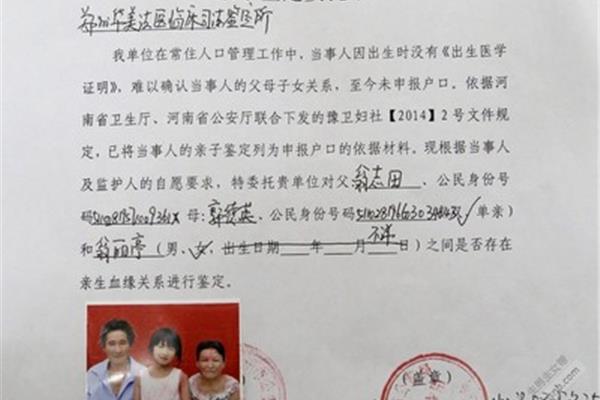 郑州华美法医临床司法鉴定所
我单位在常住人口管理工作中，当事人因出生时没有《出生医学
证明》，难以确认当事人的父母子女关系，至今未申报户口。依据河
南省卫生厅、河南省公安厅联合下发的豫卫妇社【2014】2号文件规
定，已将当事人的亲子鉴定列为申报户口的依据材料。现根据当事人
及监护人的自愿要求，特委托贵单位对父翁志田、公民身份号
码 母：郭 英、公民身份号码 （单亲）
和翁丽亭（男、女，出生日期 年 月 日）不详之间是否存在
亲生血缘关系进行鉴定。
（盖章）